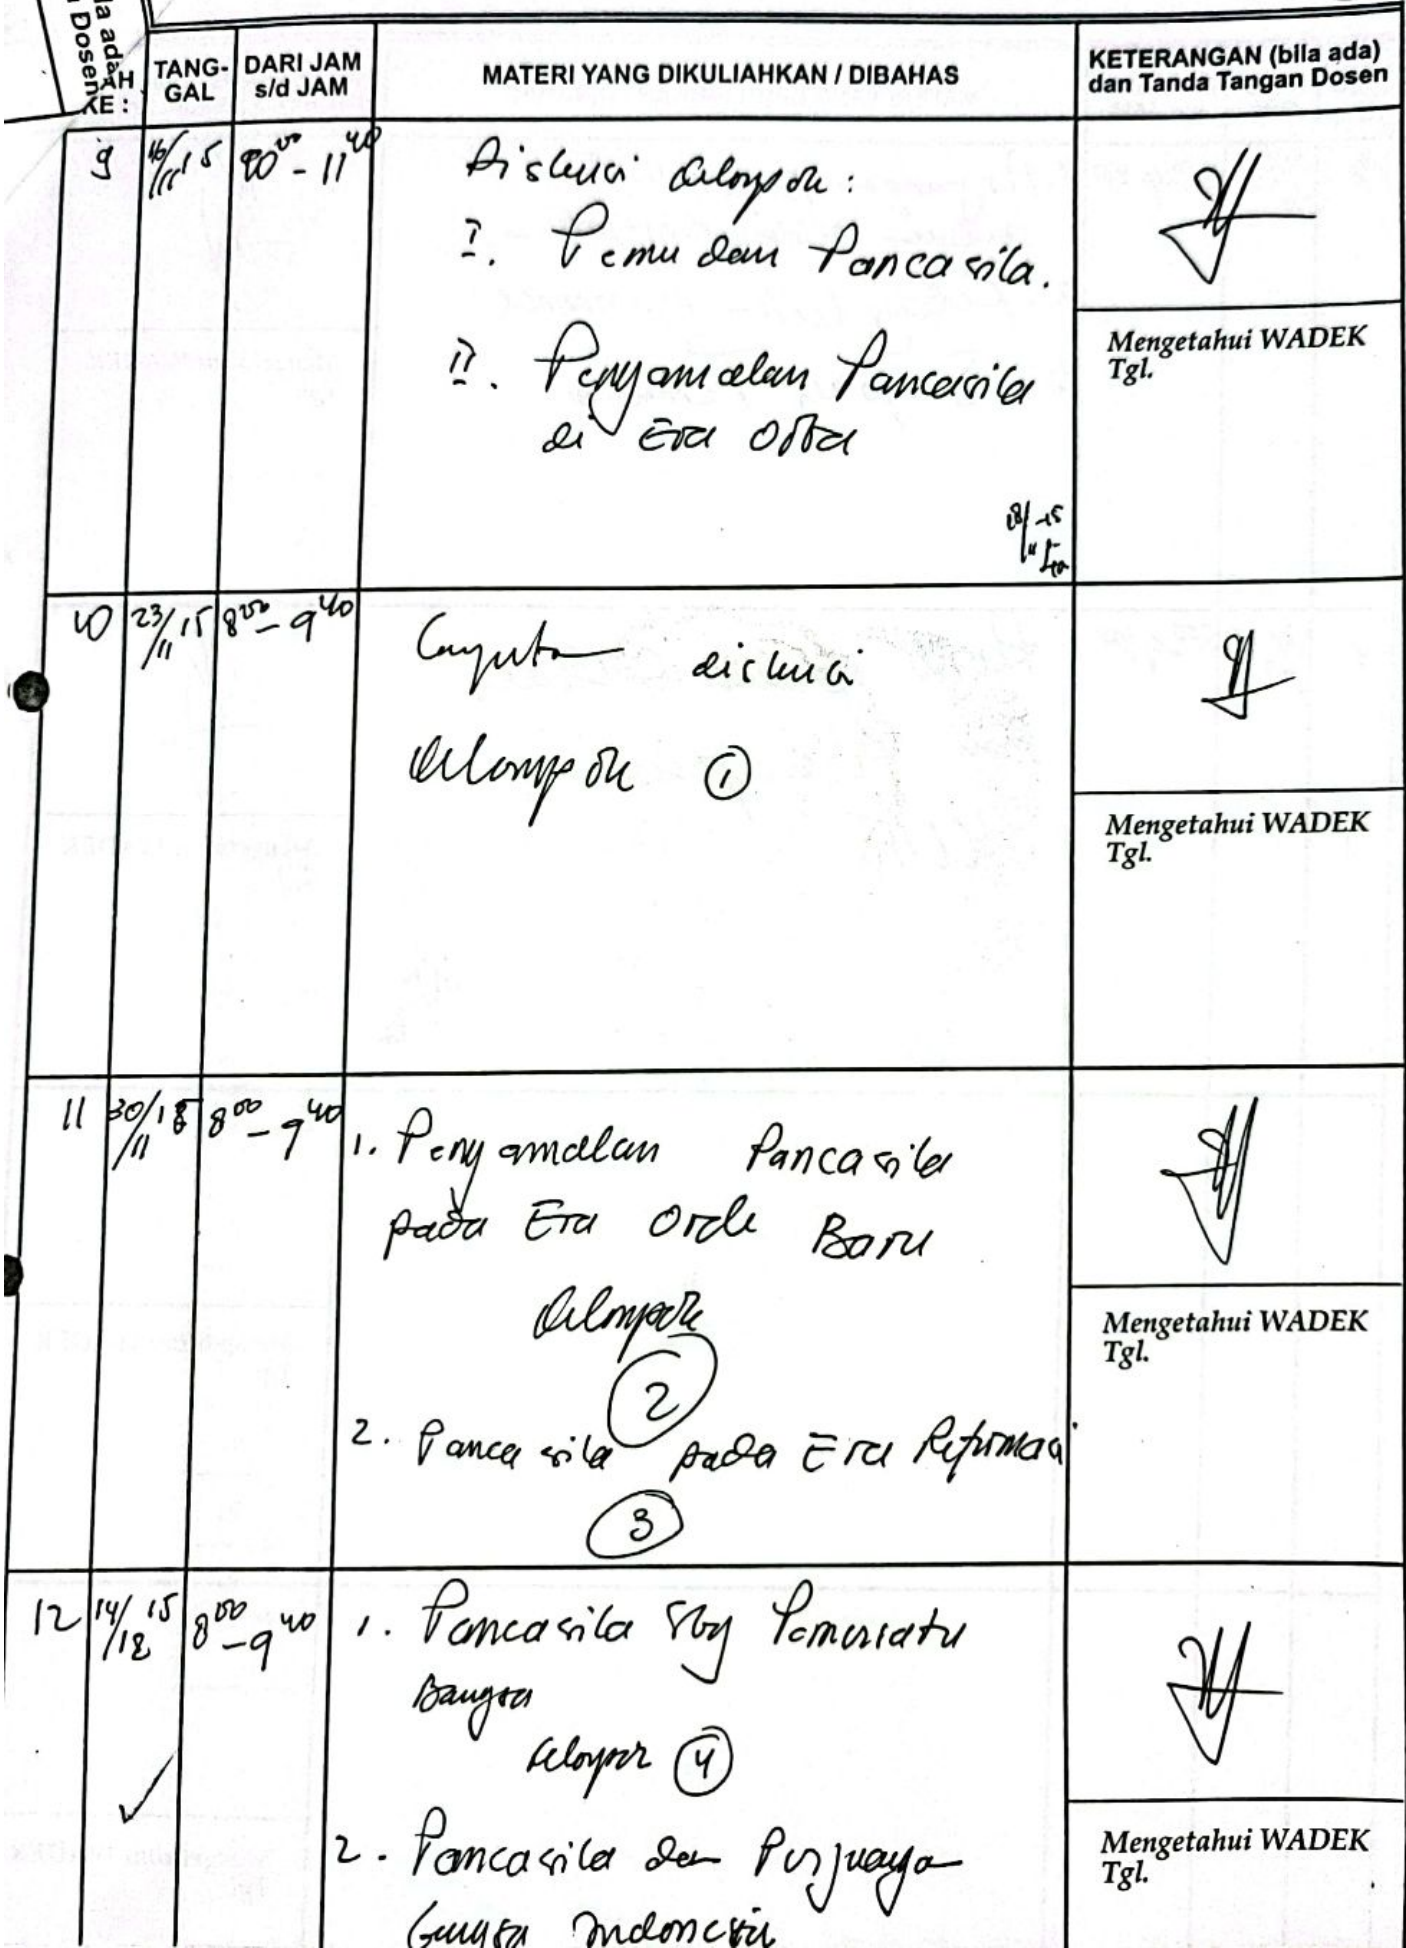 la ada
Dosen
AH
KE :
TANG-
GAL
DARI JAM
s/d JAM
MATERI YANG DIKULIAHKAN / DIBAHAS
KETERANGAN (bila ada)
dan Tanda Tangan Dosen
9 16/11 15 - 11 40
Diskusi kelompok :
I. Pemuda dan Pancasila.
II. Pengamalan Pancasila
di Era Orba
Mengetahui WADEK
Tgl.
18/11 -15
10 23/11 15 8 00 - 9 40
Lanjutan diskusi
kelompok 1
Mengetahui WADEK
Tgl.
11 30/11 15 8 00 - 9 40
1. Pengamalan Pancasila
pada Era Orde Baru
kelompok
2
2. Pancasila pada Era Reformasi
3
Mengetahui WADEK
Tgl.
12 14/12 15 8 00 - 9 40
1. Pancasila sbg Pemersatu
Bangsa
kelompok 4
2. Pancasila dan Perjuangan
bangsa Indonesia
Mengetahui WADEK
Tgl.